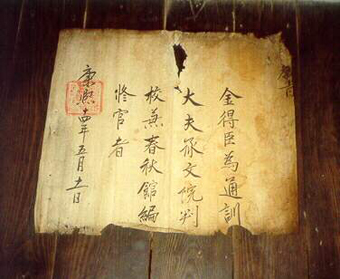 教旨
金得臣為通訓
大夫承文院判
校兼春秋館編
修官者
康熙十四年五月十一日